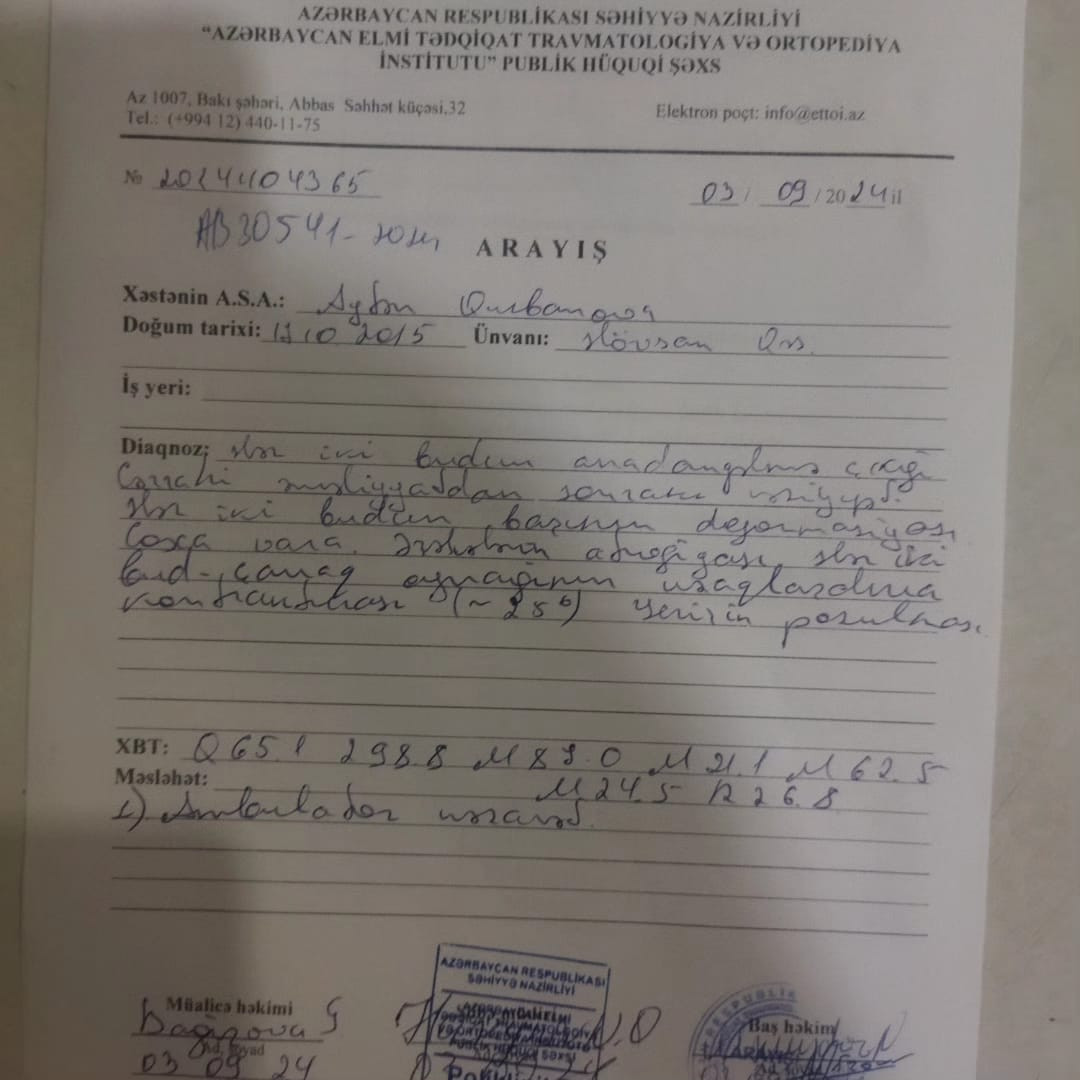 AZƏRBAYCAN RESPUBLİKASI SƏHİYYƏ NAZİRLİYİ
“AZƏRBAYCAN ELMİ TƏDQİQAT TRAVMATOLOGİYA VƏ ORTOPEDİYA
İNSTİTUTU” PUBLİK HÜQUQİ ŞƏXS
Az 1007, Bakı şəhəri, Abbas Səhhət küçəsi,32
Elektron poçt: info@ettoi.az
Tel.: (+994 12) 440-11-75
№ 20244104365
03 / 09 / 2024 il
AB30541-
ARAYIŞ
Xəstənin A.S.A.: Aytən Qurbanova
Doğum tarixi: 10 2015 Ünvanı: Hövsan Qəs.
İş yeri:
Diaqnoz: Hər iki budun anadangəlmə çıxığı
Cərrahi əməliyyatdan sonrakı vəziyyət.
Hər iki budun başının deformasiyası
Coxa vara. Əzələlərin atrofiyası, Hər iki
bud-çanaq oynağının uzaqlaşdırma
kontrakturası (~25°) Yerişin pozulması.
XBT: Q65.1 Z98.8 M89.0 M21.1 M62.5
Məsləhət: M24.5 R26.8
1) Ambulator nəzarət.
AZƏRBAYCAN RESPUBLİKASI
SƏHİYYƏ NAZİRLİYİ
Müalicə həkimi
Baş həkim
Ad, soyad
03 09 24
PUBLİK HÜQUQİ ŞƏXSİ